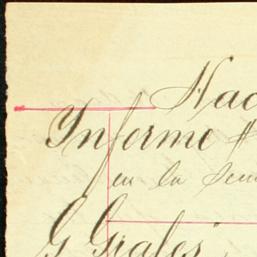 Hac
Informe #
en la Sem
G Grales